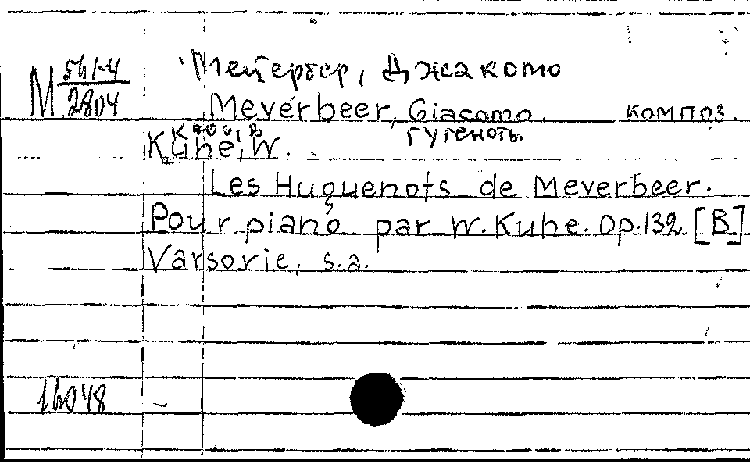 Мейербер, Джакомо
М 561-4/2804
Meyerbeer, Giacomo. композ.
Гугеноты.
Kühe, W.
Les Huguenots de Meyerbeer.
Pour piano par W. Kuhe. Op. 132 [B]
Varsovie, s.a.
16048